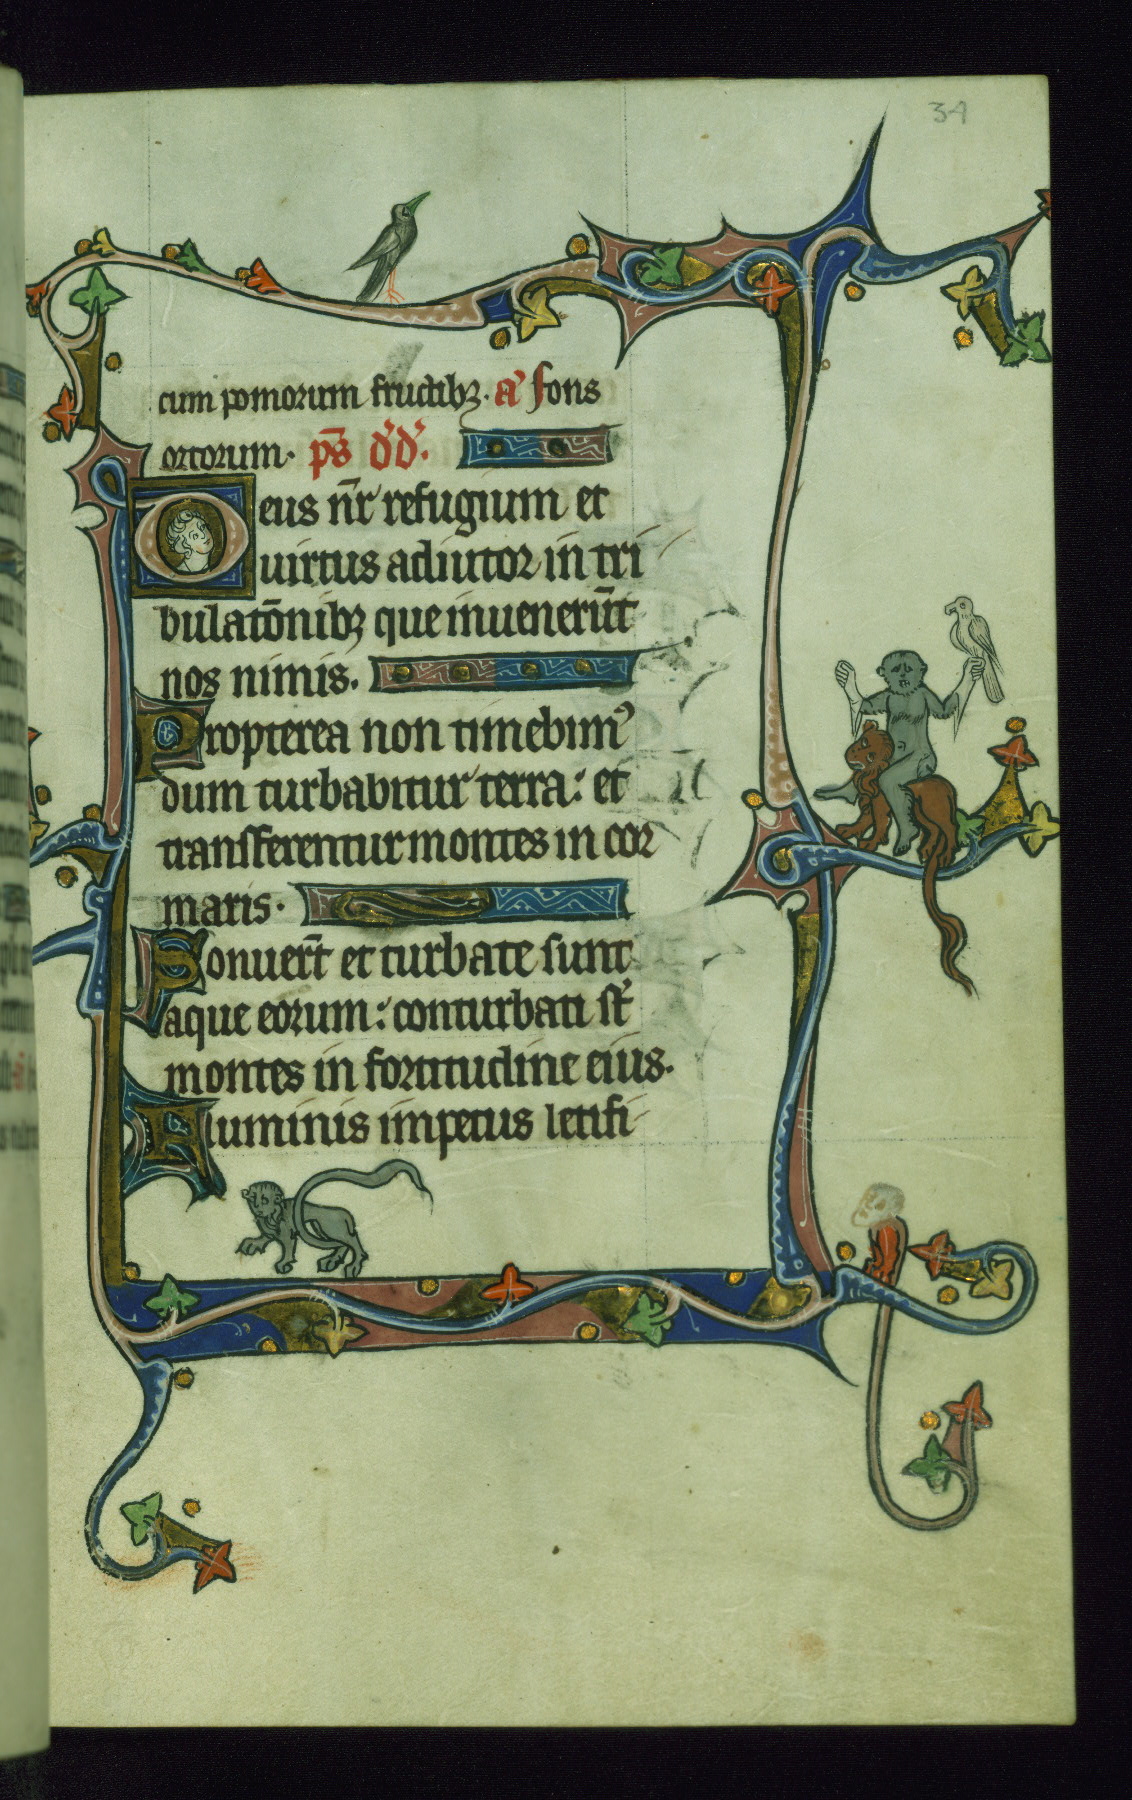 34
cum pomorum fructibꝫ. a᷒ fons
ortorum. ps̄ d'd'.
Deus nr̄ refugium et
uirtus adiutor in tri
bulatōnibꝫ que inuenerūt
nos nimis.
Propterea non timebimꝰ
dum turbabitur terra: et
transferentur montes in cor
maris.
Sonuer̄t et turbate sunt
aque eorum: conturbati st̄
montes in fortitudine eius.
Fluminis impetus letifi